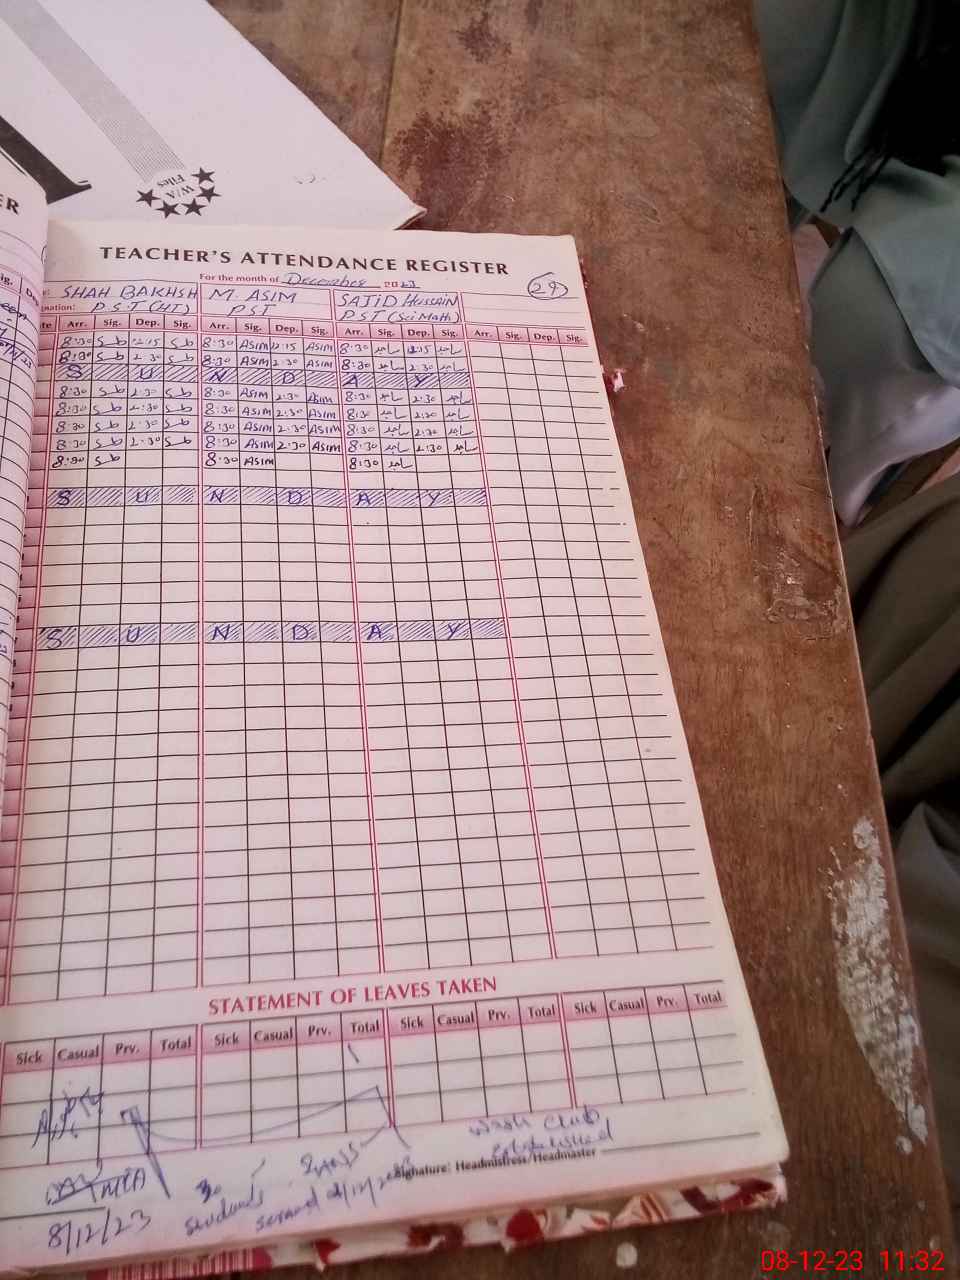 W/A
Files
ER
TEACHER'S ATTENDANCE REGISTER
For the month of December 2023
29
SHAH BAKHSH M. ASIM SAJID HUSSAIN
P.S.T (HT) PST PST (Sci Math)
Arr. Sig. Dep. Sig. Arr. Sig. Dep. Sig. Arr. Sig. Dep. Sig. Arr. Sig. Dep. Sig.
8:30 12:15 8:30 ASIM 12:15 ASIM 8:30 ساجد 12:15 ساجد
8:30 2:30 8:30 ASIM 2:30 ASIM 8:30 ساجد 2:30 ساجد
S U N D A Y
8:30 2:30 8:30 ASIM 2:30 ASIM 8:30 ساجد 2:30 ساجد
8:30 2:30 8:30 ASIM 2:30 ASIM 8:30 ساجد 2:30 ساجد
8:30 2:30 8:30 ASIM 2:30 ASIM 8:30 ساجد 2:30 ساجد
8:30 2:30 8:30 ASIM 2:30 ASIM 8:30 ساجد 2:30 ساجد
8:30 8:30 ASIM 8:30 ساجد
S U N D A Y
S U N D A Y
STATEMENT OF LEAVES TAKEN
Sick Casual Prv. Total Sick Casual Prv. Total Sick Casual Prv. Total Sick Casual Prv. Total
Wash Club
established
Signature: Headmistress/Headmaster
MEA
students
8/12/23
08-12-23 11:32